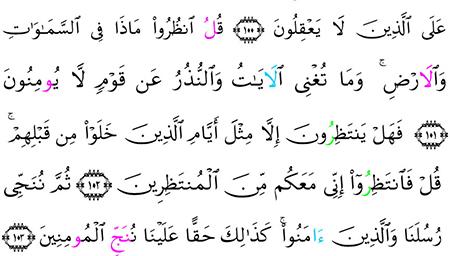 عَلَى ٱلَّذِينَ لَا يَعْقِلُونَ ١٠٠ قُلُ ٱنظُرُواْ مَاذَا فِى ٱلسَّمَٰوَٰتِ
وَٱلَارْضِۚ وَمَا تُغْنِى ٱلَايَٰتُ وَٱلنُّذُرُ عَن قَوْمٍ لَّا يُومِنُونَ
١٠١ فَهَلْ يَنتَظِرُونَ إِلَّا مِثْلَ أَيَّامِ ٱلَّذِينَ خَلَوْاْ مِن قَبْلِهِمْۚ
قُلْ فَٱنتَظِرُوٓاْ إِنِّى مَعَكُم مِّنَ ٱلْمُنتَظِرِينَ ١٠٢ ثُمَّ نُنَجِّى
رُسُلَنَا وَٱلَّذِينَ ءَامَنُواْۚ كَذَٰلِكَ حَقًّا عَلَيْنَا نُنَجِّ ٱلْمُومِنِينَ ١٠٣